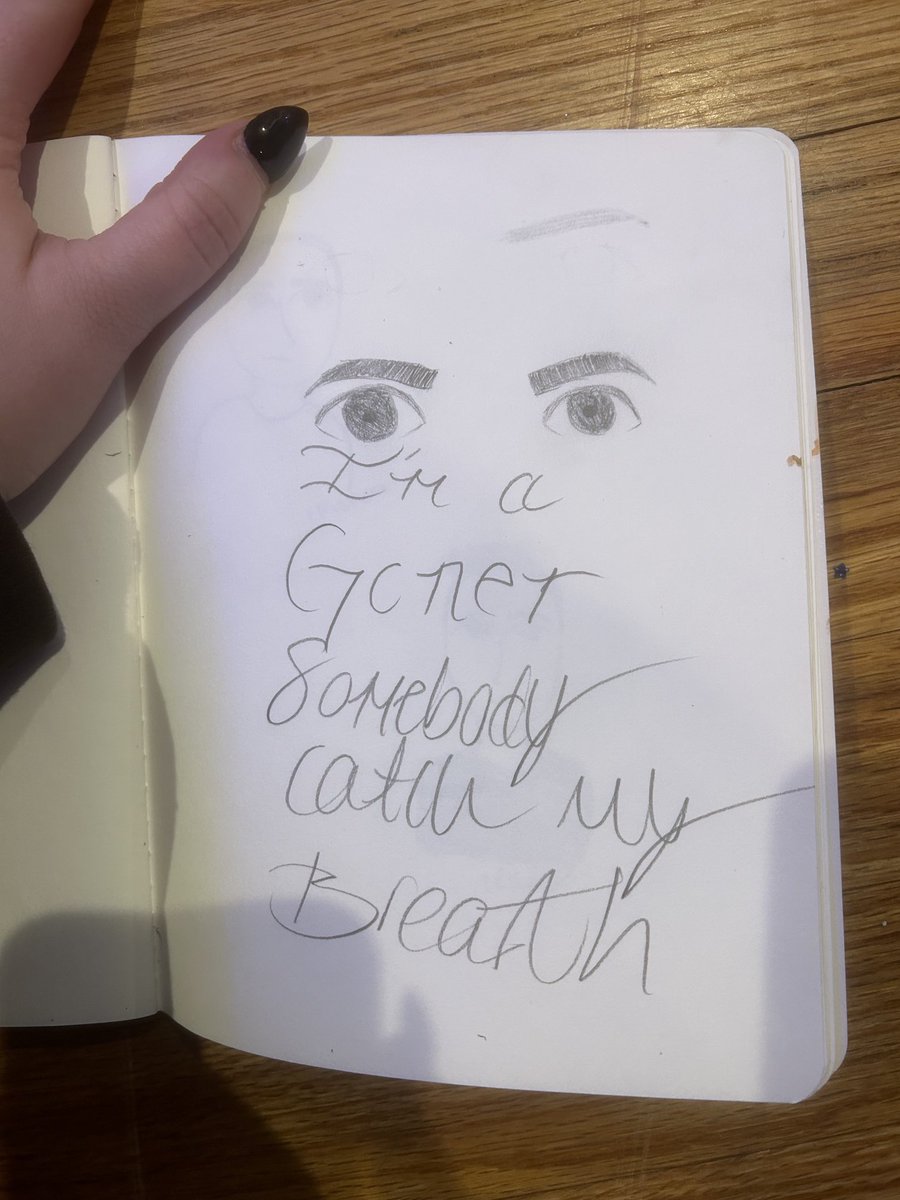 I'm a
Goner
Somebody
catch my
Breath